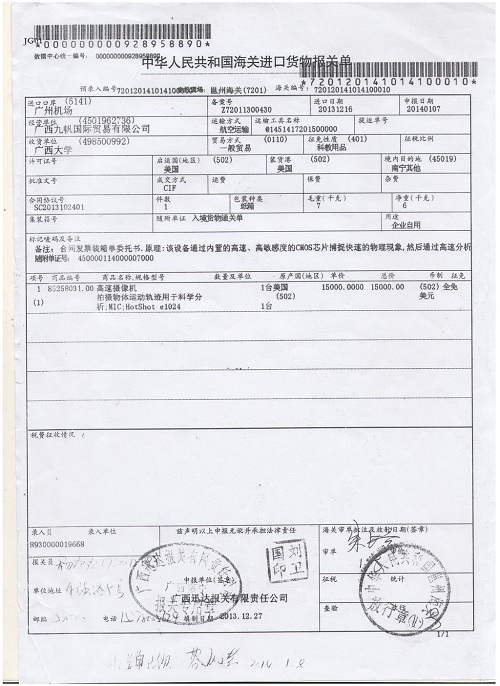 JG01
*000000000928958890*
数据中心统一编号: 000000000928958890
中华人民共和国海关进口货物报关单
*720120141014100010*
预录入编号:720120141014100 邕州海关(7201) 海关编号: 720120141014100010
进口口岸 (5141) 备案号 进口日期 申报日期
广州机场 Z72011300430 20131216 20140107
经营单位 (4501962736) 运输方式 运输工具名称 提运单号
广西九帆国际贸易有限公司 航空运输 @1451417201500000
收货单位 (498500992) 贸易方式 (0110) 征免性质 (401) 征税比例
广西大学 一般贸易 科教用品
许可证号 启运国(地区) (502) 装货港 (502) 境内目的地 (45019)
美国 美国 南宁其他
批准文号 成交方式 运费 保费 杂费
CIF
合同协议号 件数 包装种类 毛重(千克) 净重(千克)
SC2013102401 1 纸箱 7 6
集装箱号 随附单证 入境货物通关单 用途
企业自用
标记唛码及备注
备注: 合同发票装箱单委托书.原理:该设备通过内置的高速、高敏感度的CMOS芯片捕捉快速的物理现象,然后通过高速分析
随附单证号: 450000114000007000
项号 商品编号 商品名称、规格型号 数量及单位 原产国(地区) 单价 总价 币制 征免
1 85258031.00 高速摄像机 1台美国 15000.0000 15000.00 (502) 全免
(1) 拍摄物体运动轨迹用于科学分 (502) 美元
析;MIC;HotShot e1024 1台
税费征收情况
录入员 录入单位 兹声明以上申报无讹并承担法律责任 海关审单批注及放行日期(签章)
8930000019668
报关员 审单
刘卫国印
单位地址 申报单位(签章) 征税 统计
报关专用章
广西迅达报关有限责任公司
邮编 电话 填制日期 2013.12.27 查验
1/1